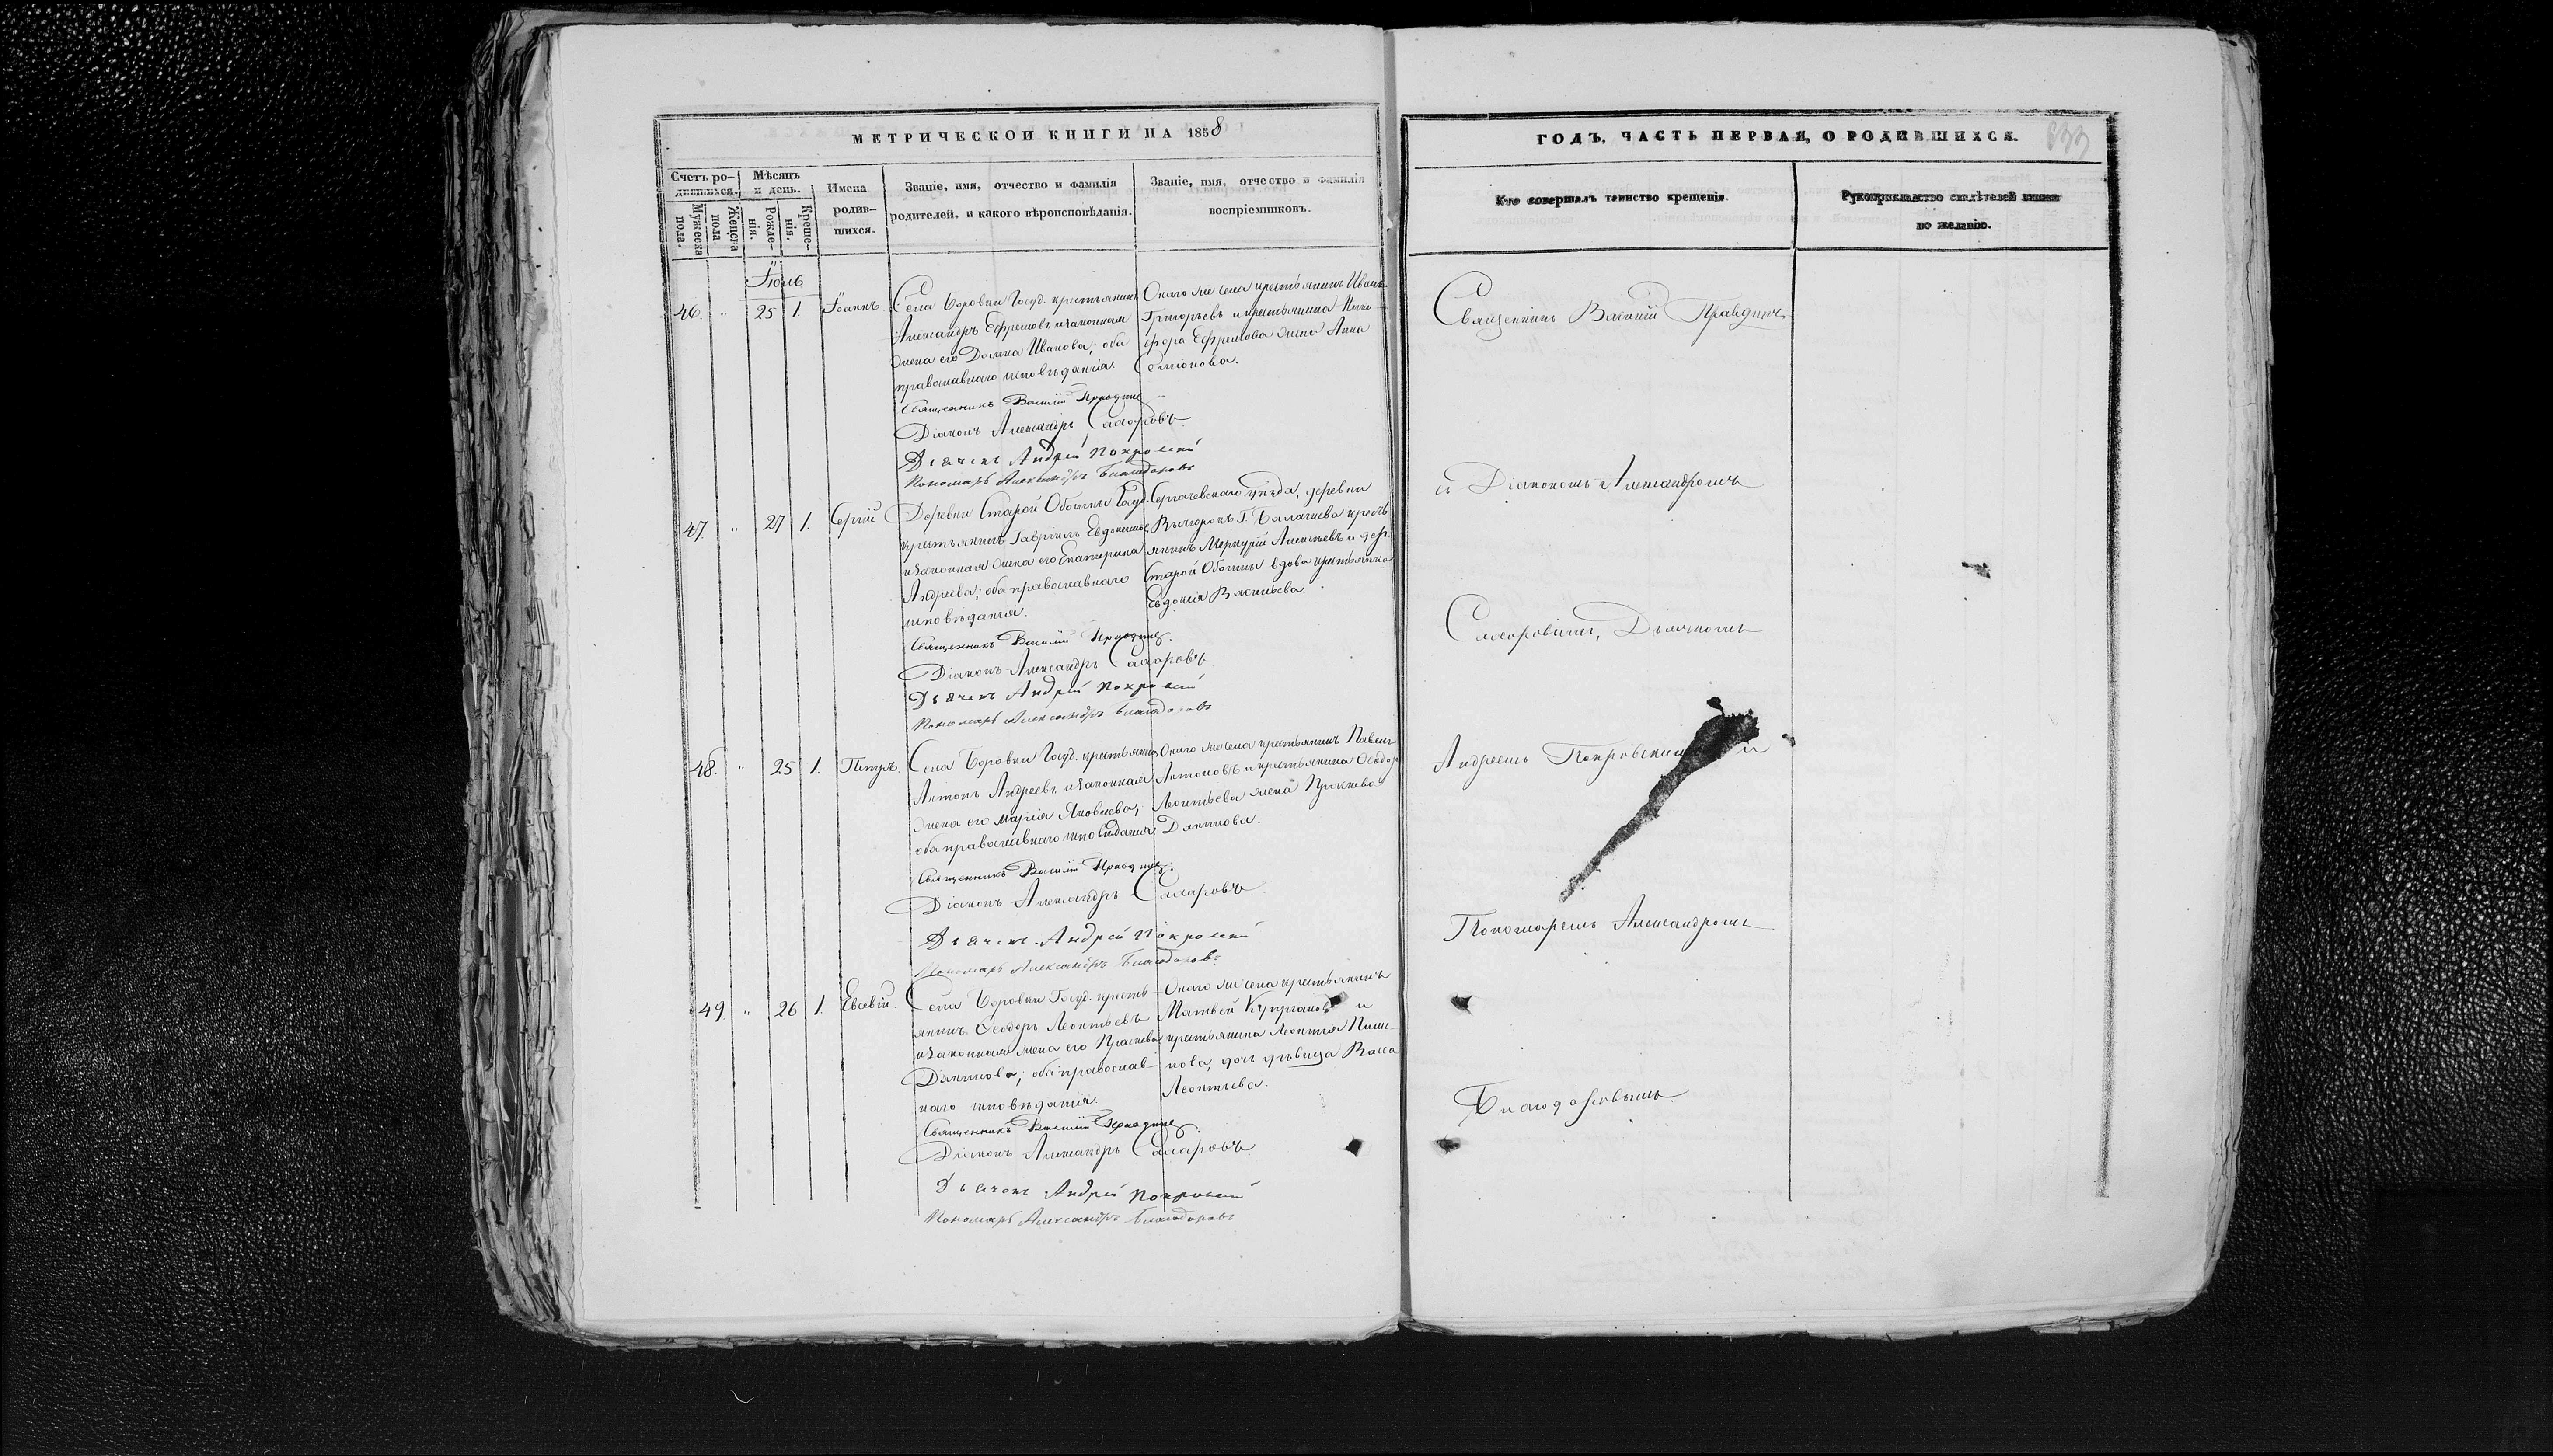 МЕТРИЧЕСКОЙ КНИГИ НА 1858
Счетъ ро-
дившихся.
Мѣсяцъ
и день.
Мужеска
пола.
Женска
пола
Рожде-
нія.
Креще-
нія.
Имена
родив-
шихся.
Званіе, имя, отчество и фамилія
родителей, и какого вѣроисповѣданія.
Званіе, имя, отчество и фамилія
воспріемниковъ.
Іюль
46. " 25 1. Іоаннъ.
Села Боровки Госуд. крестьянинъ
Александръ Ефремовъ и законная
жена его Домна Иванова; оба
православнаго исповѣданія.
Онаго же села крестьянинъ Иванъ
Григорьевъ и крестьянина Ники-
фора Ефремова жена Анна
Семіонова.
Священникъ Василій
Діаконъ Александръ
Дьячекъ Андрей Покровскій
Пономарь Александръ Благодаровъ
47. " 27 1. Сергій
Деревни Старой Госуд.
крестьянинъ Гавріилъ Евдокимовъ
и законная жена его Екатерина
Андреева; оба православнаго
исповѣданія.
уѣзда, деревни
Г. кресть-
янинъ Меркурій Алексѣевъ и дер.
Старой вдова крестьянка
Евдокія Васильева.
Священникъ Василій
Діаконъ Александръ
Дьячекъ Андрей Покровскій
Пономарь Александръ Благодаровъ
48. " 25 1. Петръ.
Села Боровки Госуд. крестьянинъ
Антонъ Андреевъ и законная
жена его Марія Яковлева;
оба православнаго исповѣданія
Онаго же села крестьянинъ Павелъ
Антоновъ и крестьянина Ѳеодора
Леонтьева жена
Данилова.
Священникъ Василій
Діаконъ Александръ
Дьячекъ Андрей Покровскій
Пономарь Александръ Благодаровъ
49. " 26 1. Евсевій.
Села Боровки Госуд. кресть-
янинъ Ѳеодоръ Леонтьевъ
и законная жена его
Данилова; оба православ-
наго исповѣданія.
Онаго же села крестьянинъ
Матвей и
крестьянина Леонтія
дочь дѣвица Васса
Леонтьева.
Священникъ Василій
Діаконъ Александръ
Дьячекъ Андрей Покровскій
Пономарь Александръ Благодаровъ
ГОДЪ, ЧАСТЬ ПЕРВАЯ, О РОДИВШИХСЯ.
Кто совершалъ таинство крещенія.
Рукоприкладство свидѣтелей записи
по желанію.
Священникъ Василій
и Діакономъ Александромъ
Дьячкомъ
Андреемъ Покровскимъ и
Пономаремъ Александромъ
Благодаровымъ.